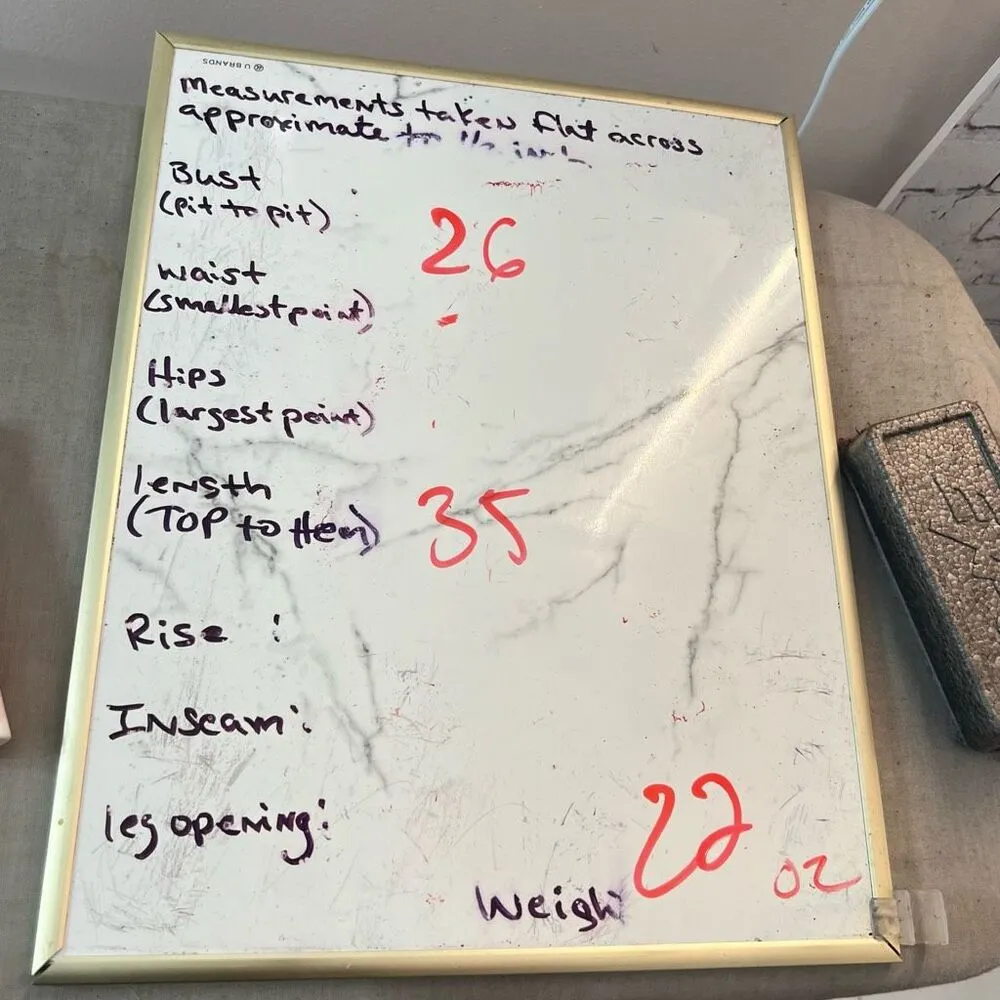 U BRANDS
Measurements taken flat across
approximate to
Bust
(pit to pit)
26
waist
(smallest point)
Hips
(largest point)
length
(TOP to Hem)
35
Rise :
Inseam:
leg opening:
22
oz
Weigh